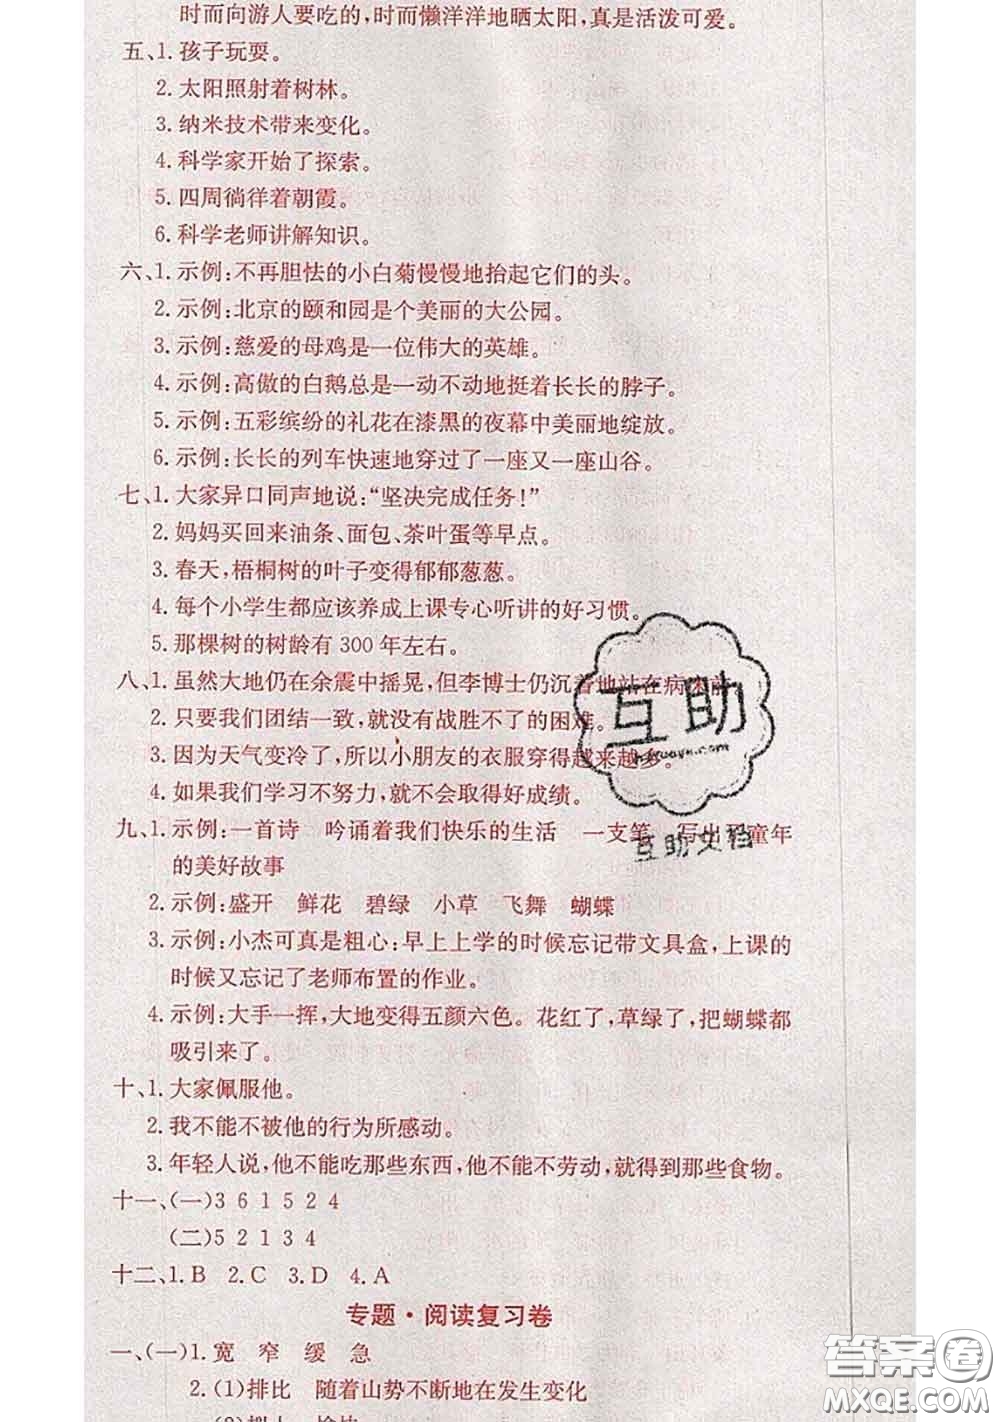 时而向游人要吃的,时而懒洋洋地晒太阳,真是活泼可爱。
五、1.孩子玩耍。
2.太阳照射着树林。
3.纳米技术带来变化。
4.科学家开始了探索。
5.四周徜徉着朝霞。
6.科学老师讲解知识。
六、1.示例:不再胆怯的小白菊慢慢地抬起它们的头。
2.示例:北京的颐和园是个美丽的大公园。
3.示例:慈爱的母鸡是一位伟大的英雄。
4.示例:高傲的白鹅总是一动不动地挺着长长的脖子。
5.示例:五彩缤纷的礼花在漆黑的夜幕中美丽地绽放。
6.示例:长长的列车快速地穿过了一座又一座山谷。
七、1.大家异口同声地说:“坚决完成任务!”
2.妈妈买回来油条、面包、茶叶蛋等早点。
3.春天,梧桐树的叶子变得郁郁葱葱。
4.每个小学生都应该养成上课专心听讲的好习惯。
5.那棵树的树龄有300年左右。
八、1.虽然大地仍在余震中摇晃,但李博士仍沉着地站在病床前
2.只要我们团结一致,就没有战胜不了的困难。
3.因为天气变冷了,所以小朋友的衣服穿得越来越多。
4.如果我们学习不努力,就不会取得好成绩。
九、1.示例:一首诗 吟诵着我们快乐的生活 一支笔 写出了童年
的美好故事
2.示例:盛开 鲜花 碧绿 小草 飞舞 蝴蝶
3.示例:小杰可真是粗心:早上上学的时候忘记带文具盒,上课的
时候又忘记了老师布置的作业。
4.示例:大手一挥,大地变得五颜六色。花红了,草绿了,把蝴蝶都
吸引来了。
十、1.大家佩服他。
2.我不能不被他的行为所感动。
3.年轻人说,他不能吃那些东西,他不能不劳动,就得到那些食物。
十一、(一)3 6 1 5 2 4
(二)5 2 1 3 4
十二、1.B 2.C 3.D 4.A
专题·阅读复习卷
一、(一)1.宽 窄 缓 急
2.(1)排比 随着山势不断地在发生变化
(2)拟人 愉快
互助
互助文档
答案圈
MXQE.COM